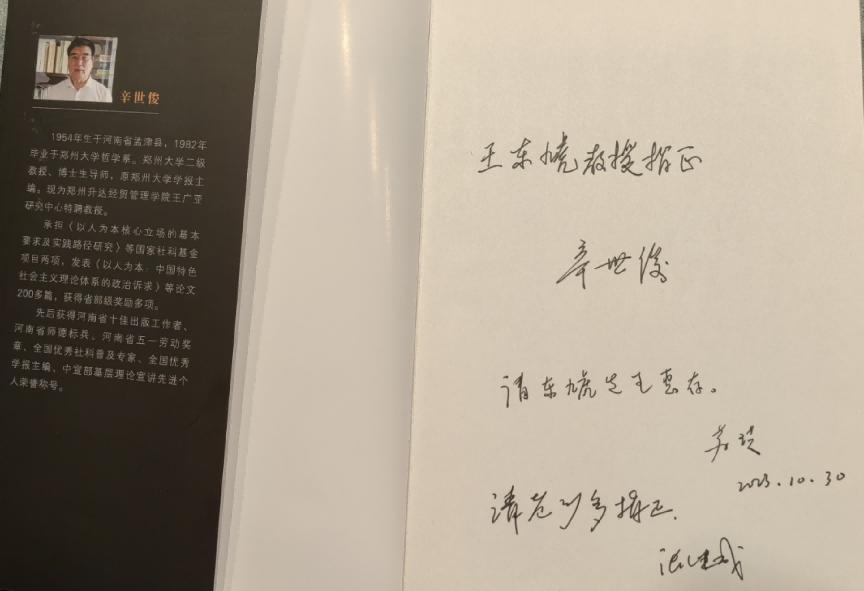 辛世俊
1954年生于河南省孟津县，1982年
毕业于郑州大学哲学系。郑州大学二级
教授、博士生导师，原郑州大学学报主
编。现为郑州升达经贸管理学院王广亚
研究中心特聘教授。
承担《以人为本核心立场的基本
要求及实践路径研究》等国家社科基金
项目两项，发表《以人为本：中国特色
社会主义理论体系的政治诉求》等论文
200多篇，获得省部级奖励多项。
先后获得河南省十佳出版工作者、
河南省师德标兵、河南省五一劳动奖
章、全国优秀社科普及专家、全国优秀
学报主编、中宣部基层理论宣讲先进个
人荣誉称号。
王东虓教授指正
辛世俊
请东虓先生惠存。
2023.10.30
请老师多指正.